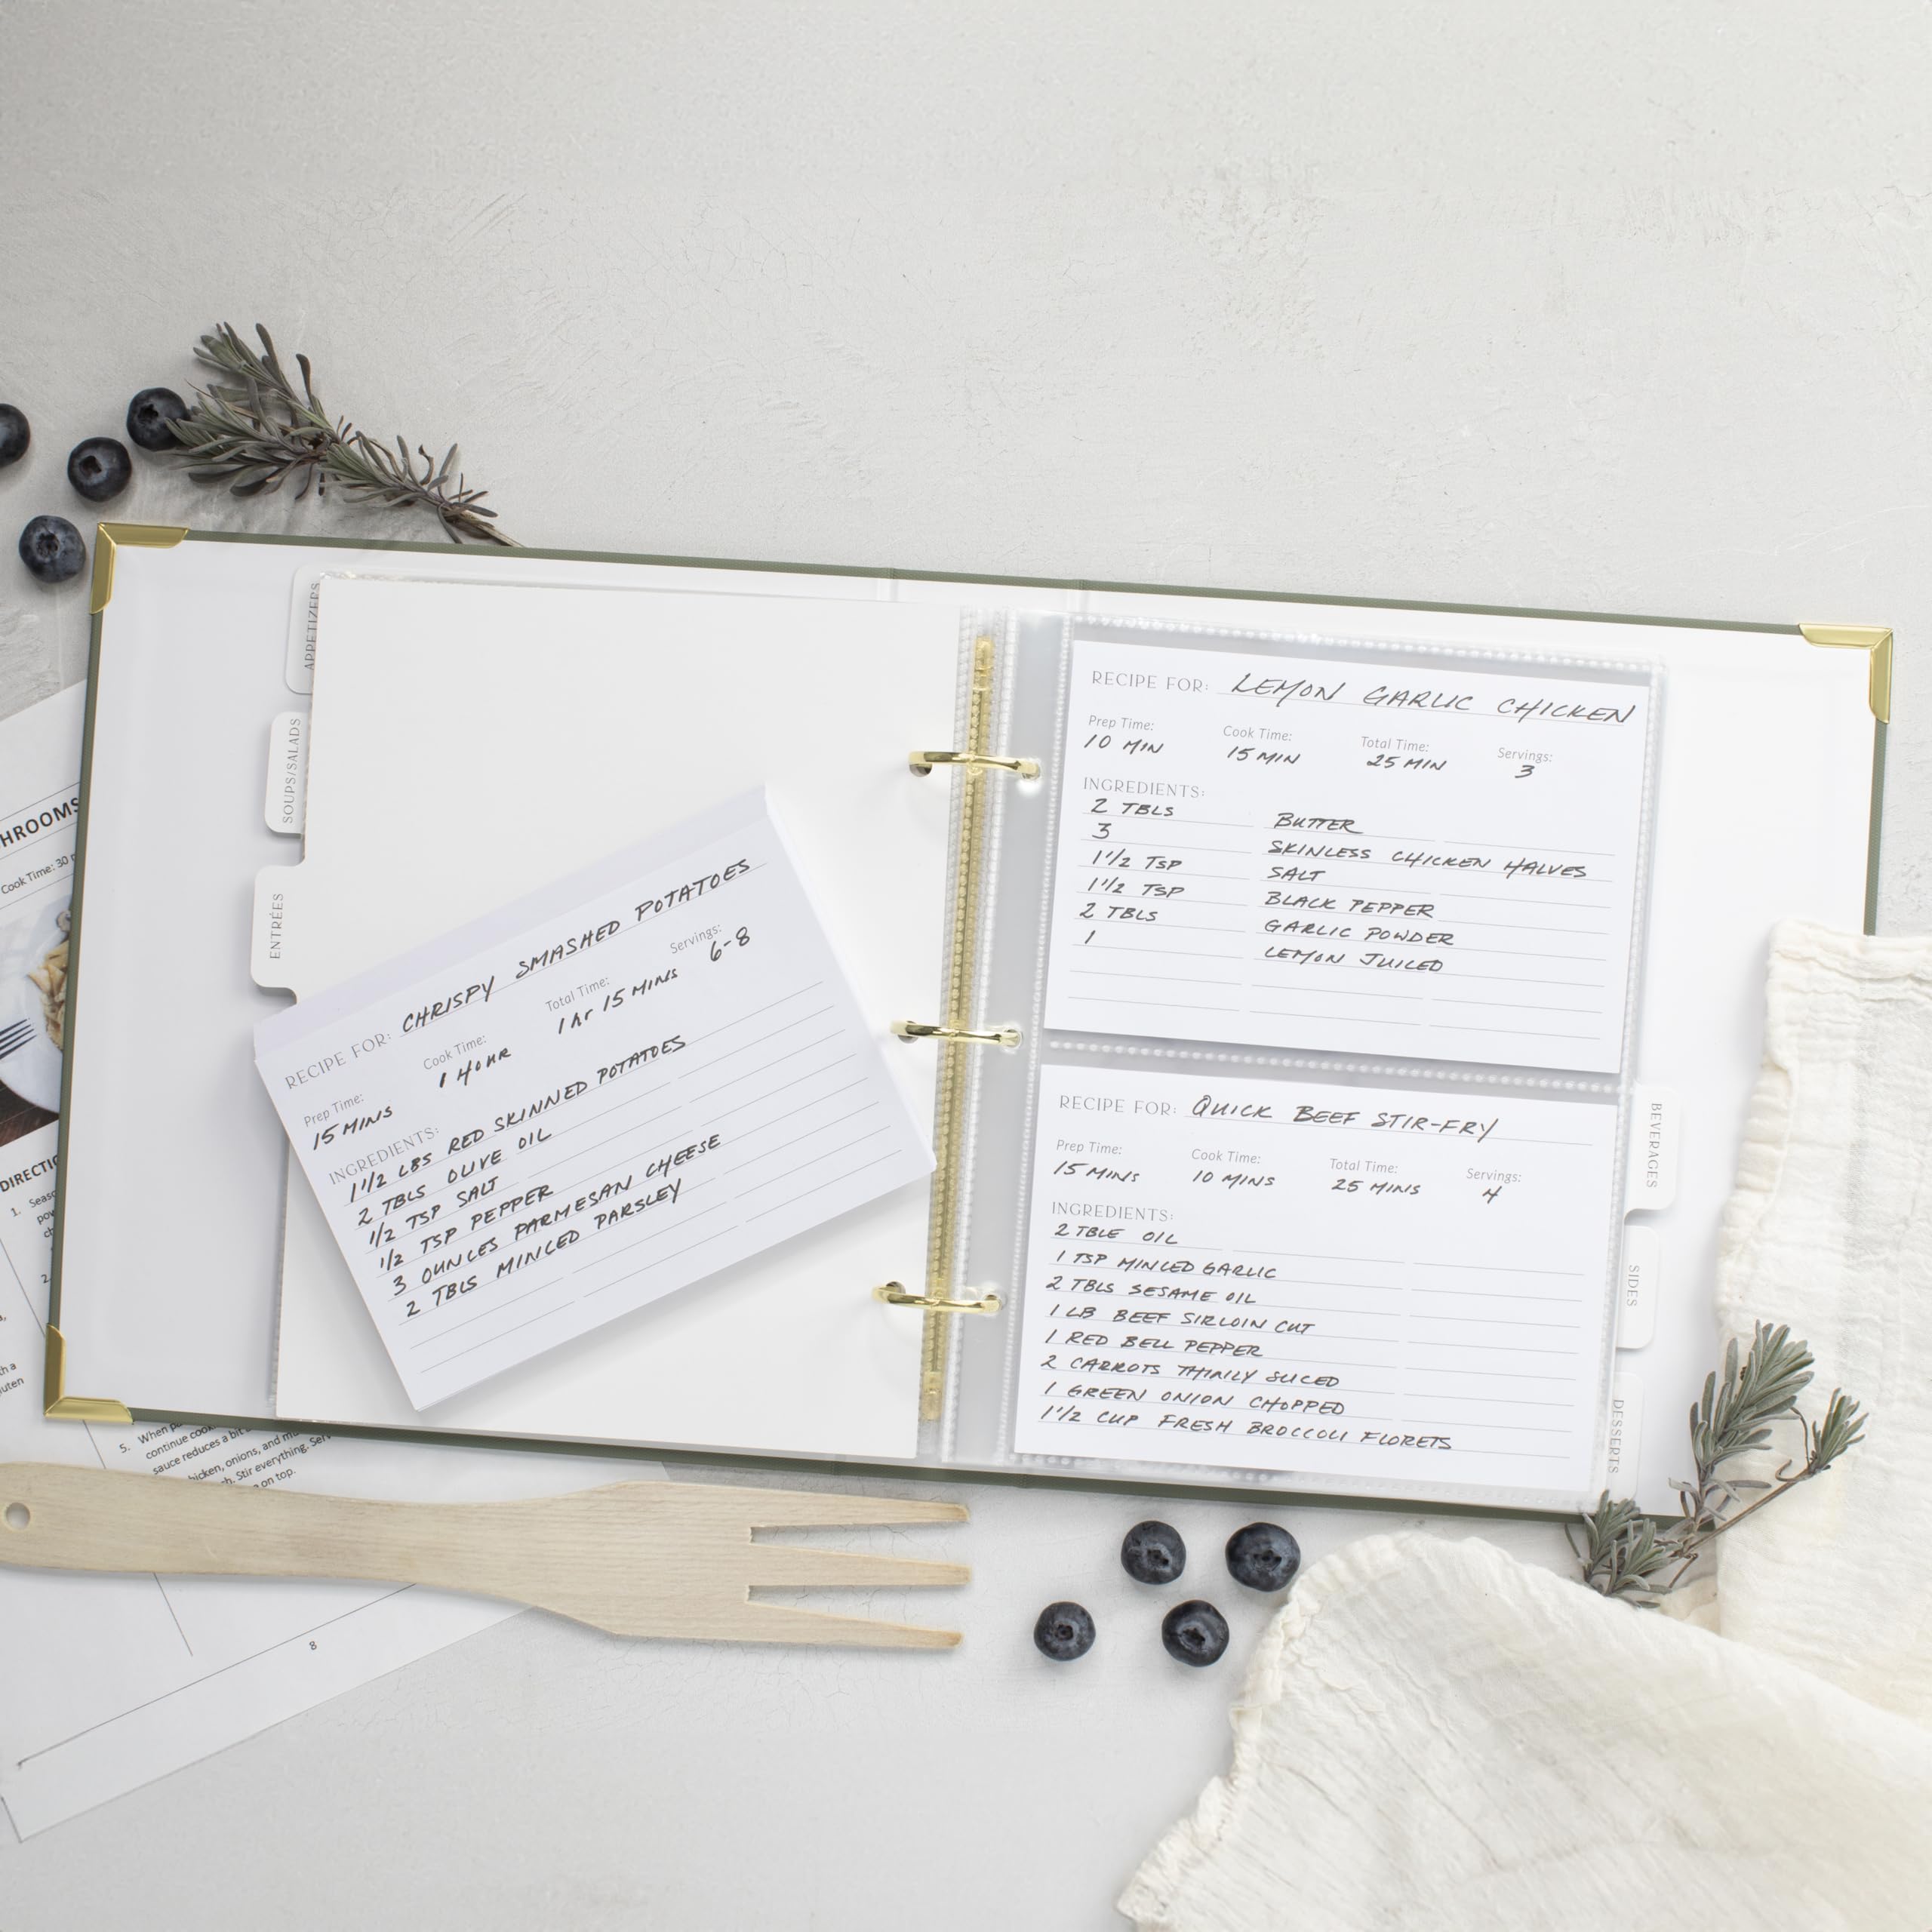 APPETIZERS
SOUPS/SALADS
ENTRÉES
HROOMS
Cook Time: 30
DIRECTIO
1. Seaso
2.
5. When
continue cook
sauce reduces a bit
hicken, onions, and mu
h. Stir everything. Serv
on top.
8
RECIPE FOR: CHRISPY SMASHED POTATOES
Prep Time: Cook Time: Total Time: Servings:
15 MINS 1 HOUR 1 hr 15 MINS 6-8
INGREDIENTS:
1 1/2 LBS RED SKINNED POTATOES
2 TBLS OLIVE OIL
1/2 TSP SALT
1/2 TSP PEPPER
3 OUNCES PARMESAN CHEESE
2 TBLS MINCED PARSLEY
RECIPE FOR: LEMON GARLIC CHICKEN
Prep Time: Cook Time: Total Time: Servings:
10 MIN 15 MIN 25 MIN 3
INGREDIENTS:
2 TBLS BUTTER
3 SKINLESS CHICKEN HALVES
1 1/2 TSP SALT
1 1/2 TSP BLACK PEPPER
2 TBLS GARLIC POWDER
1 LEMON JUICED
RECIPE FOR: QUICK BEEF STIR-FRY
Prep Time: Cook Time: Total Time: Servings:
15 MINS 10 MINS 25 MINS 4
INGREDIENTS:
2 TBLE OIL
1 TSP MINCED GARLIC
2 TBLS SESAME OIL
1 LB BEEF SIRLOIN CUT
1 RED BELL PEPPER
2 CARROTS THINLY SLICED
1 GREEN ONION CHOPPED
1 1/2 CUP FRESH BROCCOLI FLORETS
BEVERAGES
SIDES
DESSERTS